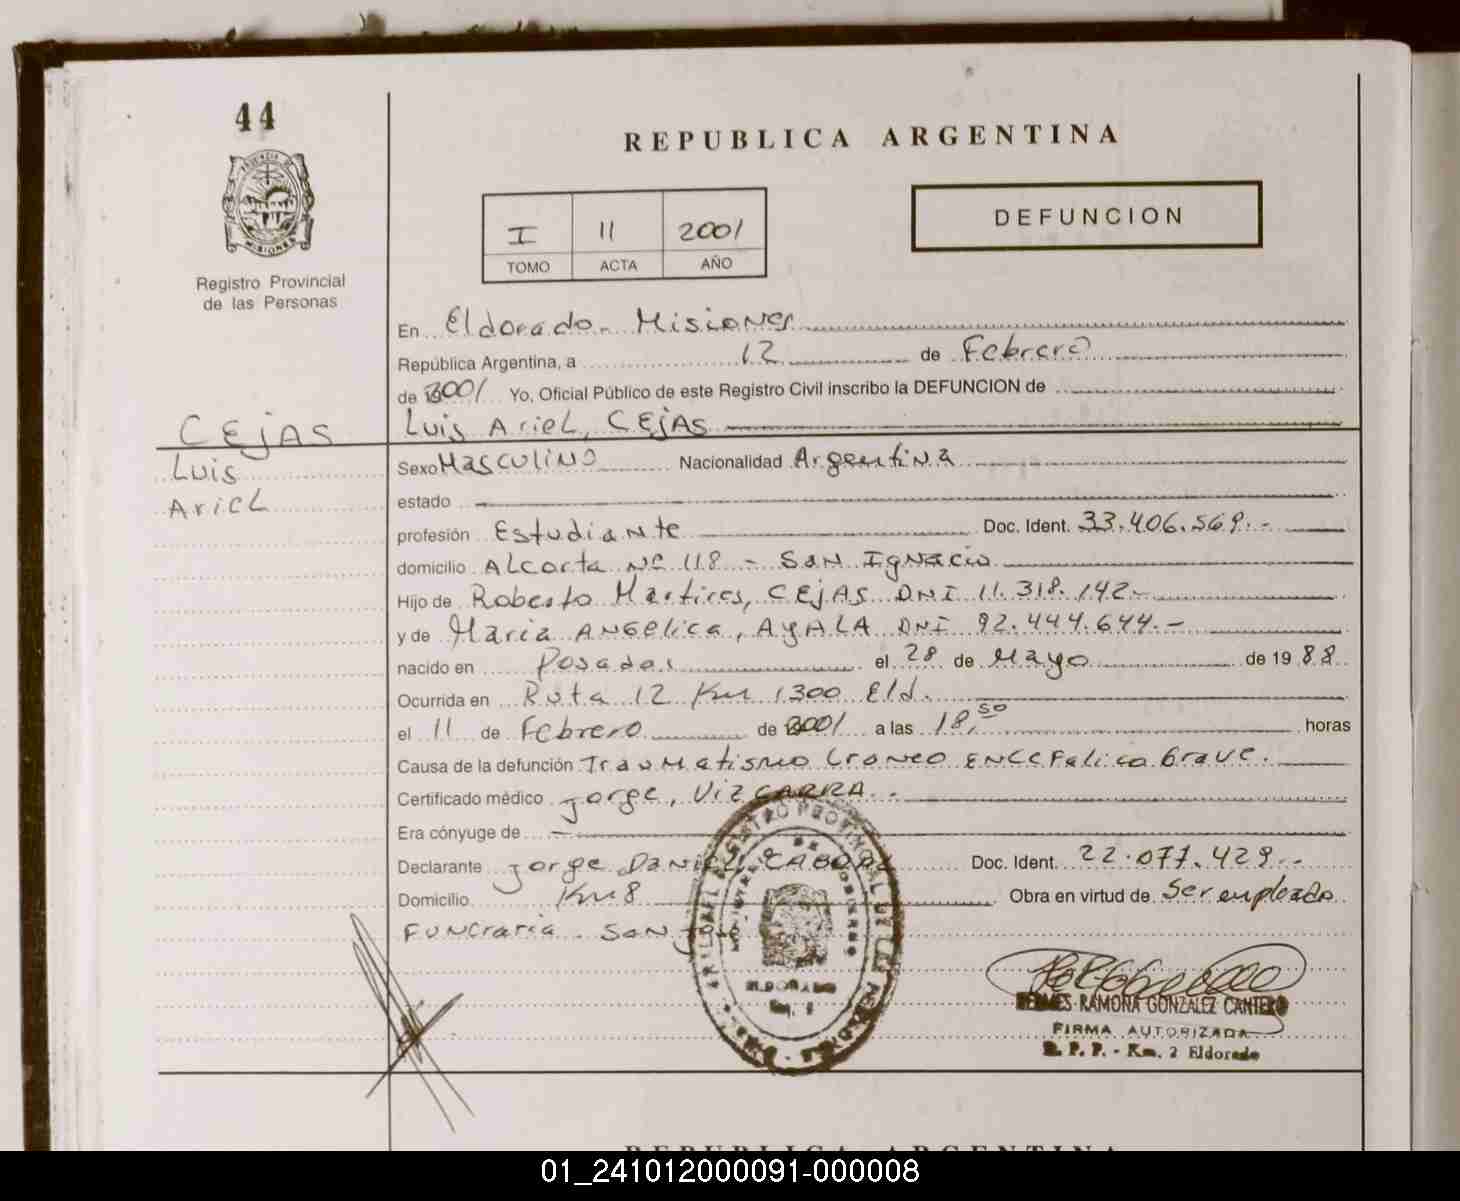 44
REPUBLICA ARGENTINA
MISIONES
Registro Provincial
de las Personas
I 11 2001
TOMO ACTA AÑO
DEFUNCION
En Eldorado - Misiones
República Argentina, a 12 de Febrero
de 2001 Yo, Oficial Público de este Registro Civil inscribo la DEFUNCION de
CEJAS
Luis
Ariel
Luis Ariel, CEJAS
Sexo Masculino Nacionalidad Argentina
estado —
profesión Estudiante Doc. Ident. 33.406.569.-
domicilio Alcorta Nº 118 - San Ignacio
Hijo de Roberto Martires, CEJAS DNI 11.318.142.-
y de Maria Angelica, AYALA DNI 92.444.644.-
nacido en Posadas el 28 de Mayo de 1988
Ocurrida en Ruta 12 Km 1300 Eld.
el 11 de Febrero de 2001 a las 18,50 horas
Causa de la defunción Traumatismo Craneo Encefalico Grave.
Certificado médico Jorge, VIZCARRA.-
Era cónyuge de —
Declarante Jorge Daniel CABRAL Doc. Ident. 22.077.429.-
Domicilio Km 8 Obra en virtud de Ser empleado
Funeraria San
REGISTRO PROVINCIAL DE LAS PERSONAS
MINISTERIO DE GOBIERNO
ELDORADO
HERMES RAMONA GONZALEZ CANTERO
FIRMA AUTORIZADA
R. P. P. - Km. 2 Eldorado
REPUBLICA ARGENTINA
01_241012000091-000008